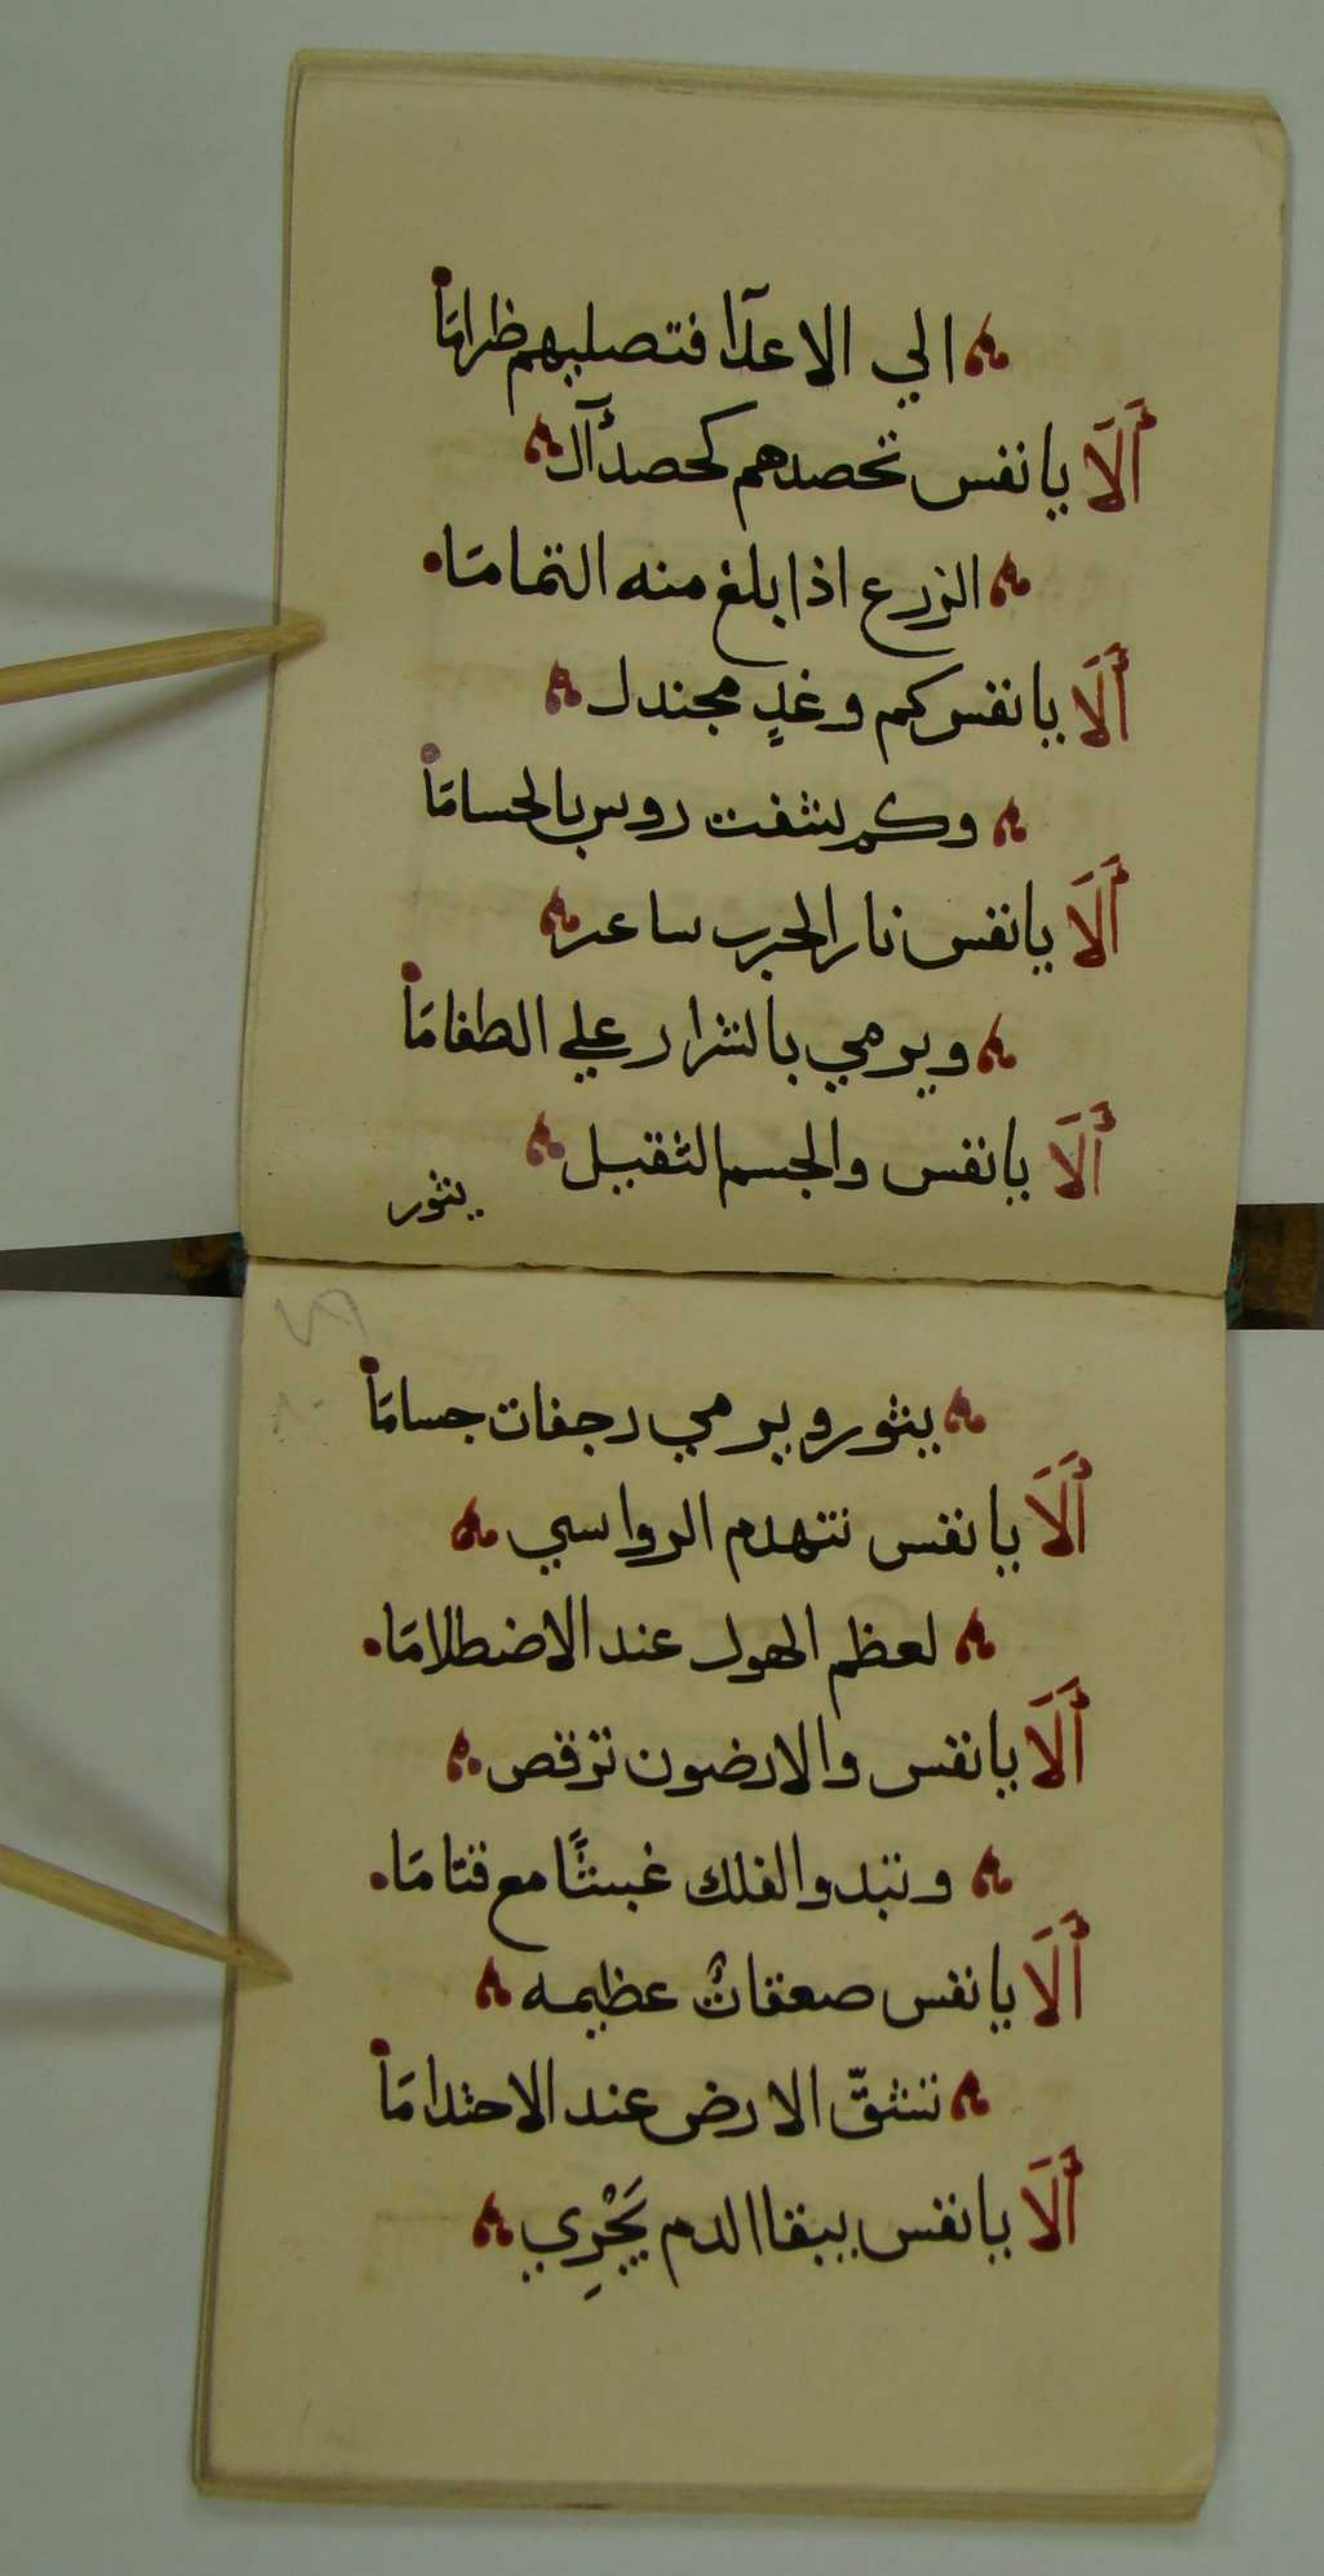 الي الاعدآا فتصليهم ظرامَاً
أَلَا يا نفس تحصدهم كحصدٱلـ
الزرع اذا بلغ منه التمامَا
أَلَا يا نفس كم وغدٍ مجندل
وكم نشفت روس بالحسامَا
أَلَا يا نفس نار الحرب ساعر
ويرمي بالشرار علي الطغامَا
أَلَا يا نفس والجسم الثقيل
يثور
يثور ويرمي رجفات جسامَا
أَلَا يا نفس تتهدم الرواسي
لعظم الهول عند الاضطلامَا
أَلَا يا نفس والارضون ترقص
وتبدو الفلك غبشًا مع قتامَا
أَلَا يا نفس صعقاتٌ عظيمه
تنشقّ الارض عند الاحتدامَا
أَلَا يا نفس يبقا الدم يَجْرِي